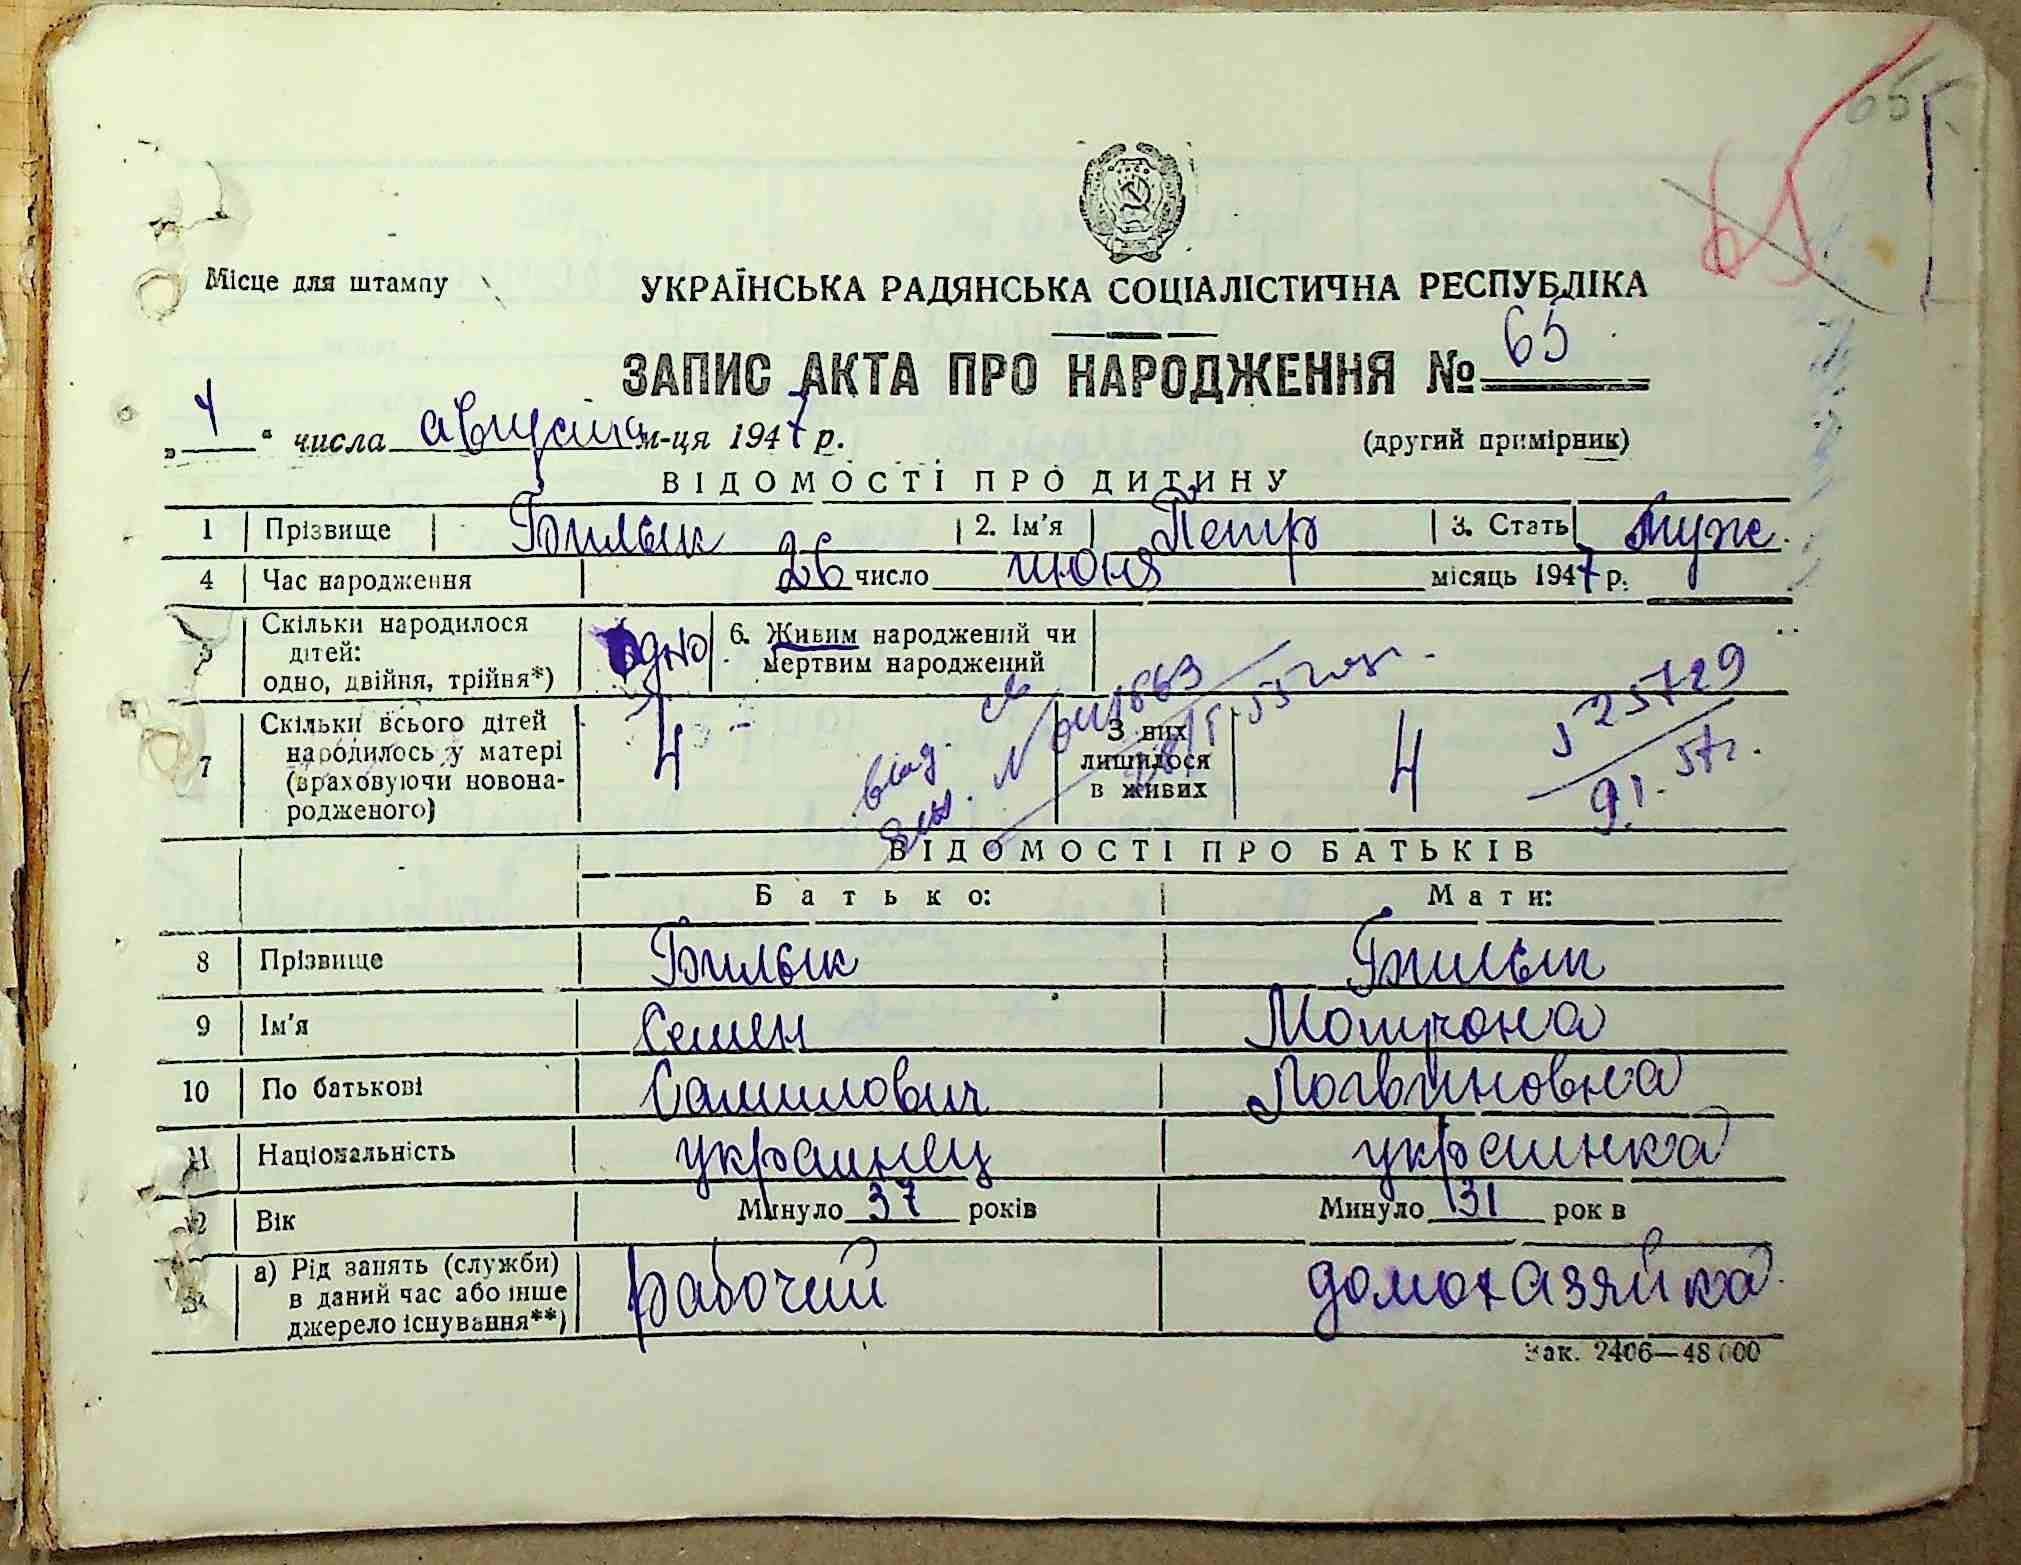 65
65
Місце для штампу
УКРАЇНСЬКА РАДЯНСЬКА СОЦІАЛІСТИЧНА РЕСПУБЛІКА
ЗАПИС АКТА ПРО НАРОДЖЕННЯ № 65
„ “ числа августа м-ця 1947 р. (другий примірник)
ВІДОМОСТІ ПРО ДИТИНУ
1 Прізвище Билык 2. Ім'я Петр 3. Стать муж.
4 Час народження 26 число июня місяць 1947 р.
5 Скільки народилося дітей: одно, двійня, трійня*) одно 6. Живим народжений чи мертвим народжений
7 Скільки всього дітей народилось у матері (враховуючи новонародженого) 4 З них лишилося в живих 4
выд. св
55 год.
525729
9.I.57г.
ВІДОМОСТІ ПРО БАТЬКІВ
Батько: Мати:
8 Прізвище Билык Билык
9 Ім'я Семен Мотрона
10 По батькові Самилович Логвиновна
11 Національність украинец украинка
12 Вік Минуло 37 років Минуло 31 рок в
а) Рід занять (служби) в даний час або інше джерело існування**) рабочий домохазяйка
Зак. 2406—48 000